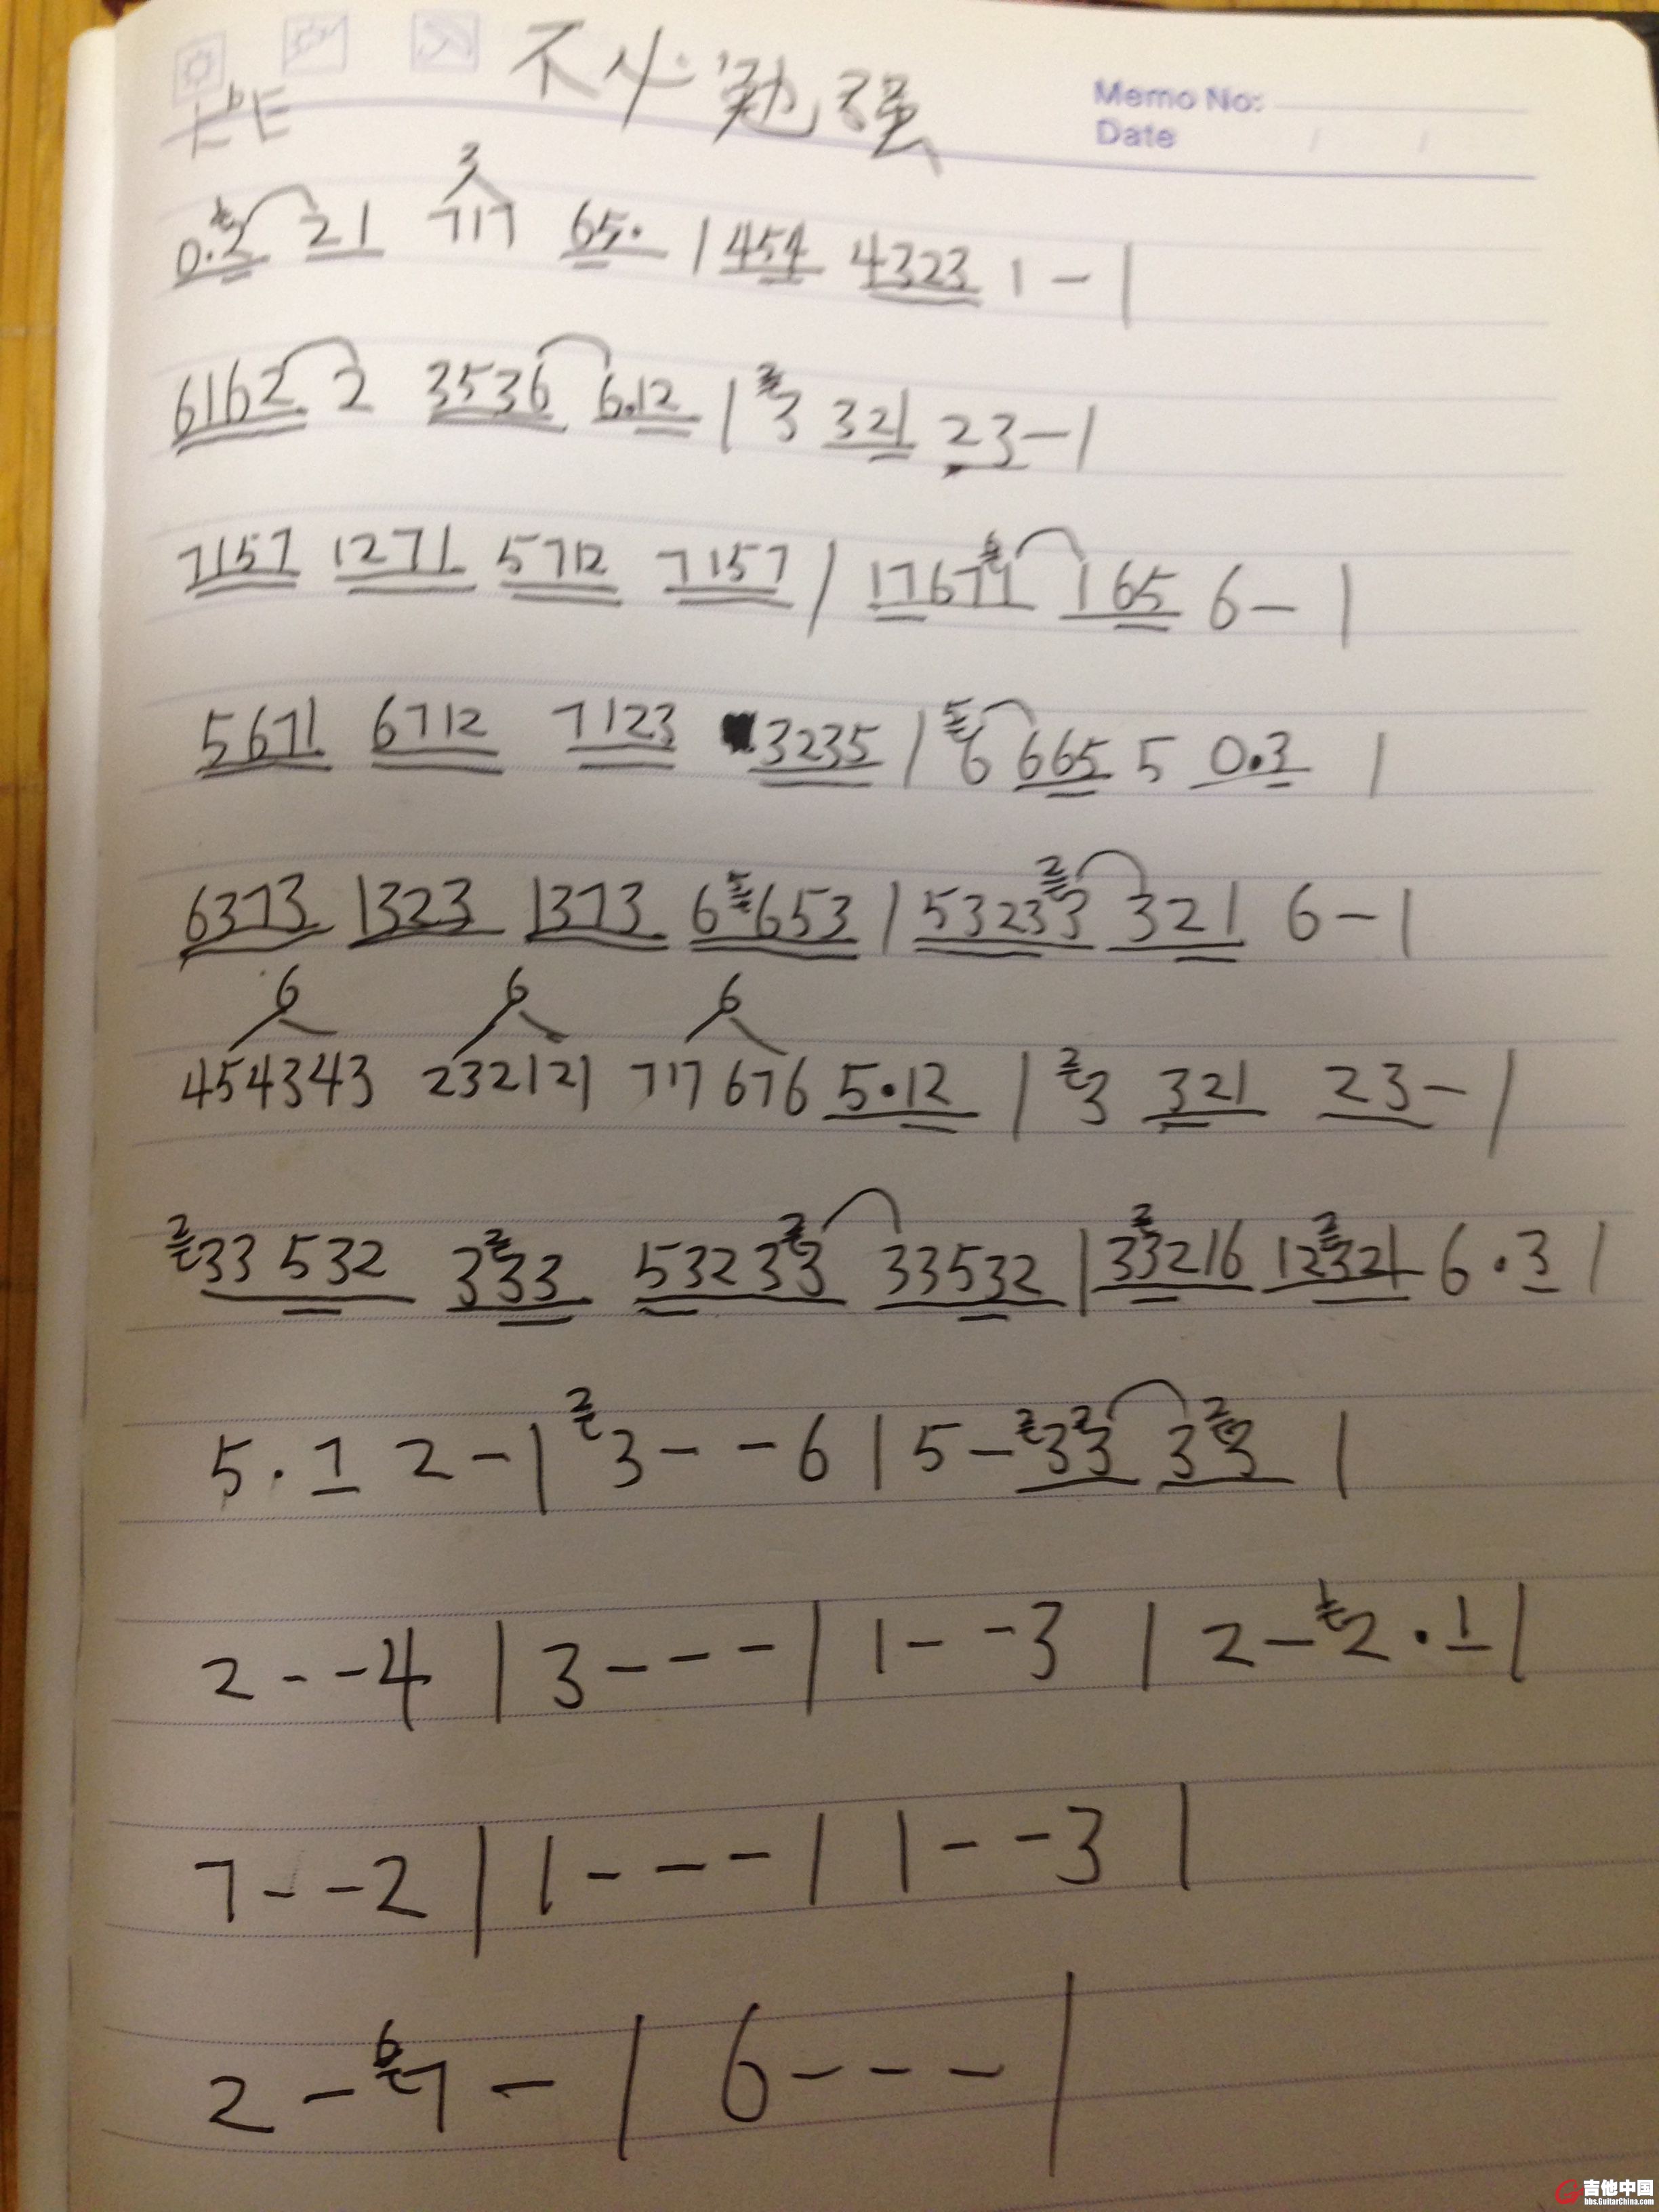 不必勉强
Memo No:
bE
Date / /
3
0.2 21 717 65. | 454 4323 1 - |
6162 2 3536 6.12 | 2 3 321 23 - |
7157 1271 5712 7157 | 17671 165 6 - |
5671 6712 7123 3235 | 5 6 665 5 0.3 |
6373 1323 1373 6 5 653 | 5323 2 3 321 6 - |
6 6 6
454343 232121 717676 5.12 | 2 3 321 23 - |
2 33 532 3 2 33 5323 2 3 33532 | 3 2 3216 12 2 321 6 . 3 |
5 . 1 2 - | 2 3 - - 6 | 5 - 2 3 2 3 3 2 3 |
2 - - 4 | 3 - - - | 1 - - 3 | 2 - 1 2 . 1 |
7 - - 2 | 1 - - - | 1 - - 3 |
2 - 6 7 - | 6 - - - |
吉他中国
bbs.GuitarChina.com